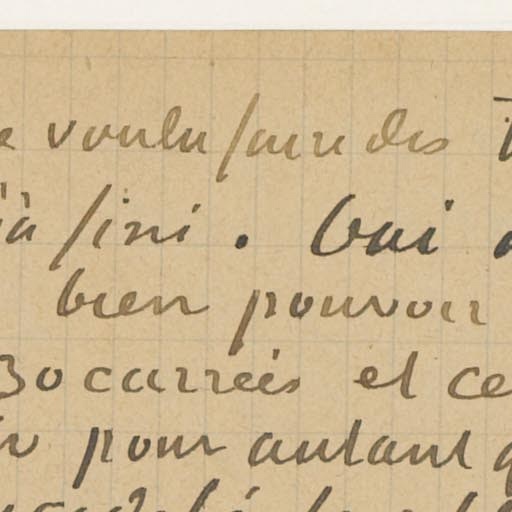 voulu faire des
fini. Oui
bien pouvoir
30 carrées et ce
pour autant